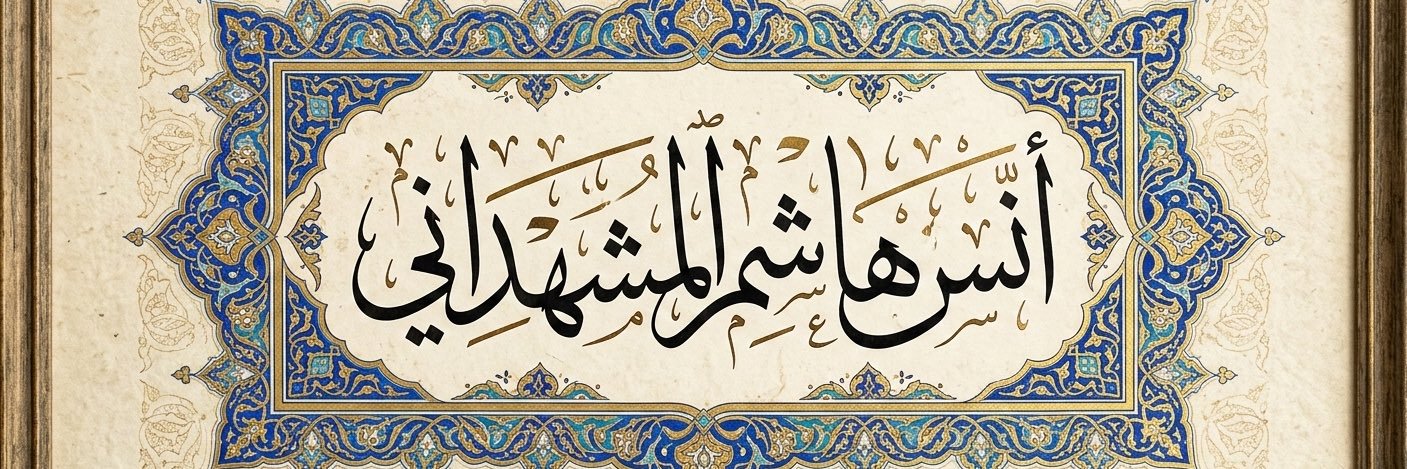 أنس هاشم المشهداني